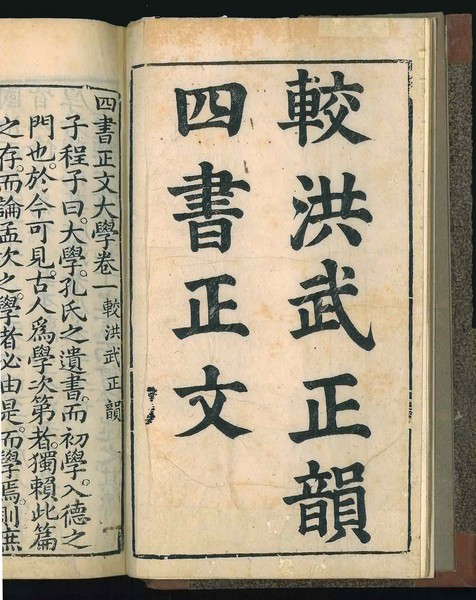 較洪武正韻
四書正文
四書正文大學卷一 較洪武正韻
子程子曰。大學。孔氏之遺書。而初學入德之
門也。於今可見古人爲學次第者。獨賴此篇
之存。而論孟次之。學者必由是而學焉。則庶